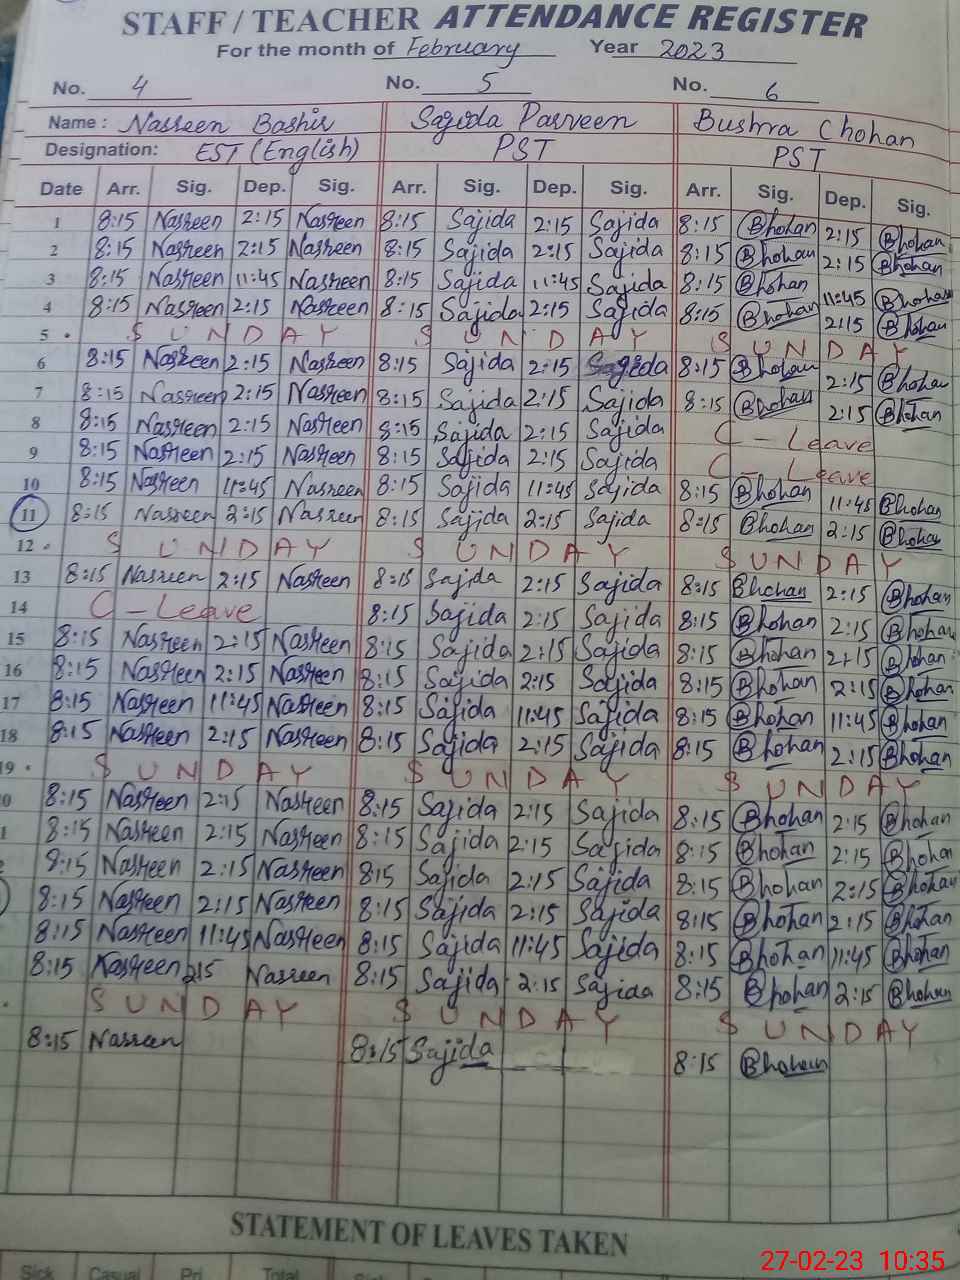 STAFF / TEACHER ATTENDANCE REGISTER
For the month of February Year 2023
No. 4 No. 5 No. 6
Name : Nasreen Bashir Sajida Parveen Bushra Chohan
Designation: EST (English) PST PST
Date Arr. Sig. Dep. Sig. Arr. Sig. Dep. Sig. Arr. Sig. Dep. Sig.
1 8:15 Nasreen 2:15 Nasreen 8:15 Sajida 2:15 Sajida 8:15 Bhohan 2:15 Bhohan
2 8:15 Nasreen 2:15 Nasreen 8:15 Sajida 2:15 Sajida 8:15 Bhohan 2:15 Bhohan
3 8:15 Nasreen 11:45 Nasreen 8:15 Sajida 11:45 Sajida 8:15 Bhohan 11:45 Bhohan
4 8:15 Nasreen 2:15 Nasreen 8:15 Sajida 2:15 Sajida 8:15 Bhohan 2:15 Bhohan
5 SUNDAY SUNDAY SUNDAY
6 8:15 Nasreen 2:15 Nasreen 8:15 Sajida 2:15 Sajida 8:15 Bhohan 2:15 Bhohan
7 8:15 Nasreen 2:15 Nasreen 8:15 Sajida 2:15 Sajida 8:15 Bhohan 2:15 Bhohan
8 8:15 Nasreen 2:15 Nasreen 8:15 Sajida 2:15 Sajida C - Leave
9 8:15 Nasreen 2:15 Nasreen 8:15 Sajida 2:15 Sajida C - Leave
10 8:15 Nasreen 11:45 Nasreen 8:15 Sajida 11:45 Sajida 8:15 Bhohan 11:45 Bhohan
11 8:15 Nasreen 2:15 Nasreen 8:15 Sajida 2:15 Sajida 8:15 Bhohan 2:15 Bhohan
12 SUNDAY SUNDAY SUNDAY
13 8:15 Nasreen 2:15 Nasreen 8:15 Sajida 2:15 Sajida 8:15 Bhohan 2:15 Bhohan
14 C - Leave 8:15 Sajida 2:15 Sajida 8:15 Bhohan 2:15 Bhohan
15 8:15 Nasreen 2:15 Nasreen 8:15 Sajida 2:15 Sajida 8:15 Bhohan 2:15 Bhohan
16 8:15 Nasreen 2:15 Nasreen 8:15 Sajida 2:15 Sajida 8:15 Bhohan 2:15 Bhohan
17 8:15 Nasreen 11:45 Nasreen 8:15 Sajida 11:45 Sajida 8:15 Bhohan 11:45 Bhohan
18 8:15 Nasreen 2:15 Nasreen 8:15 Sajida 2:15 Sajida 8:15 Bhohan 2:15 Bhohan
19 SUNDAY SUNDAY SUNDAY
0 8:15 Nasreen 2:15 Nasreen 8:15 Sajida 2:15 Sajida 8:15 Bhohan 2:15 Bhohan
1 8:15 Nasreen 2:15 Nasreen 8:15 Sajida 2:15 Sajida 8:15 Bhohan 2:15 Bhohan
8:15 Nasreen 2:15 Nasreen 815 Sajida 2:15 Sajida 8:15 Bhohan 2:15 Bhohan
8:15 Nasreen 2:15 Nasreen 8:15 Sajida 2:15 Sajida 8:15 Bhohan 2:15 Bhohan
8:15 Nasreen 11:45 Nasreen 8:15 Sajida 11:45 Sajida 8:15 Bhohan 11:45 Bhohan
8:15 Nasreen 215 Nasreen 8:15 Sajida 2:15 Sajida 8:15 Bhohan 2:15 Bhohan
SUNDAY SUNDAY SUNDAY
8:15 Nasreen 8:15 Sajida 8:15 Bhohan
STATEMENT OF LEAVES TAKEN
Sick Casual Pri Total
27-02-23 10:35